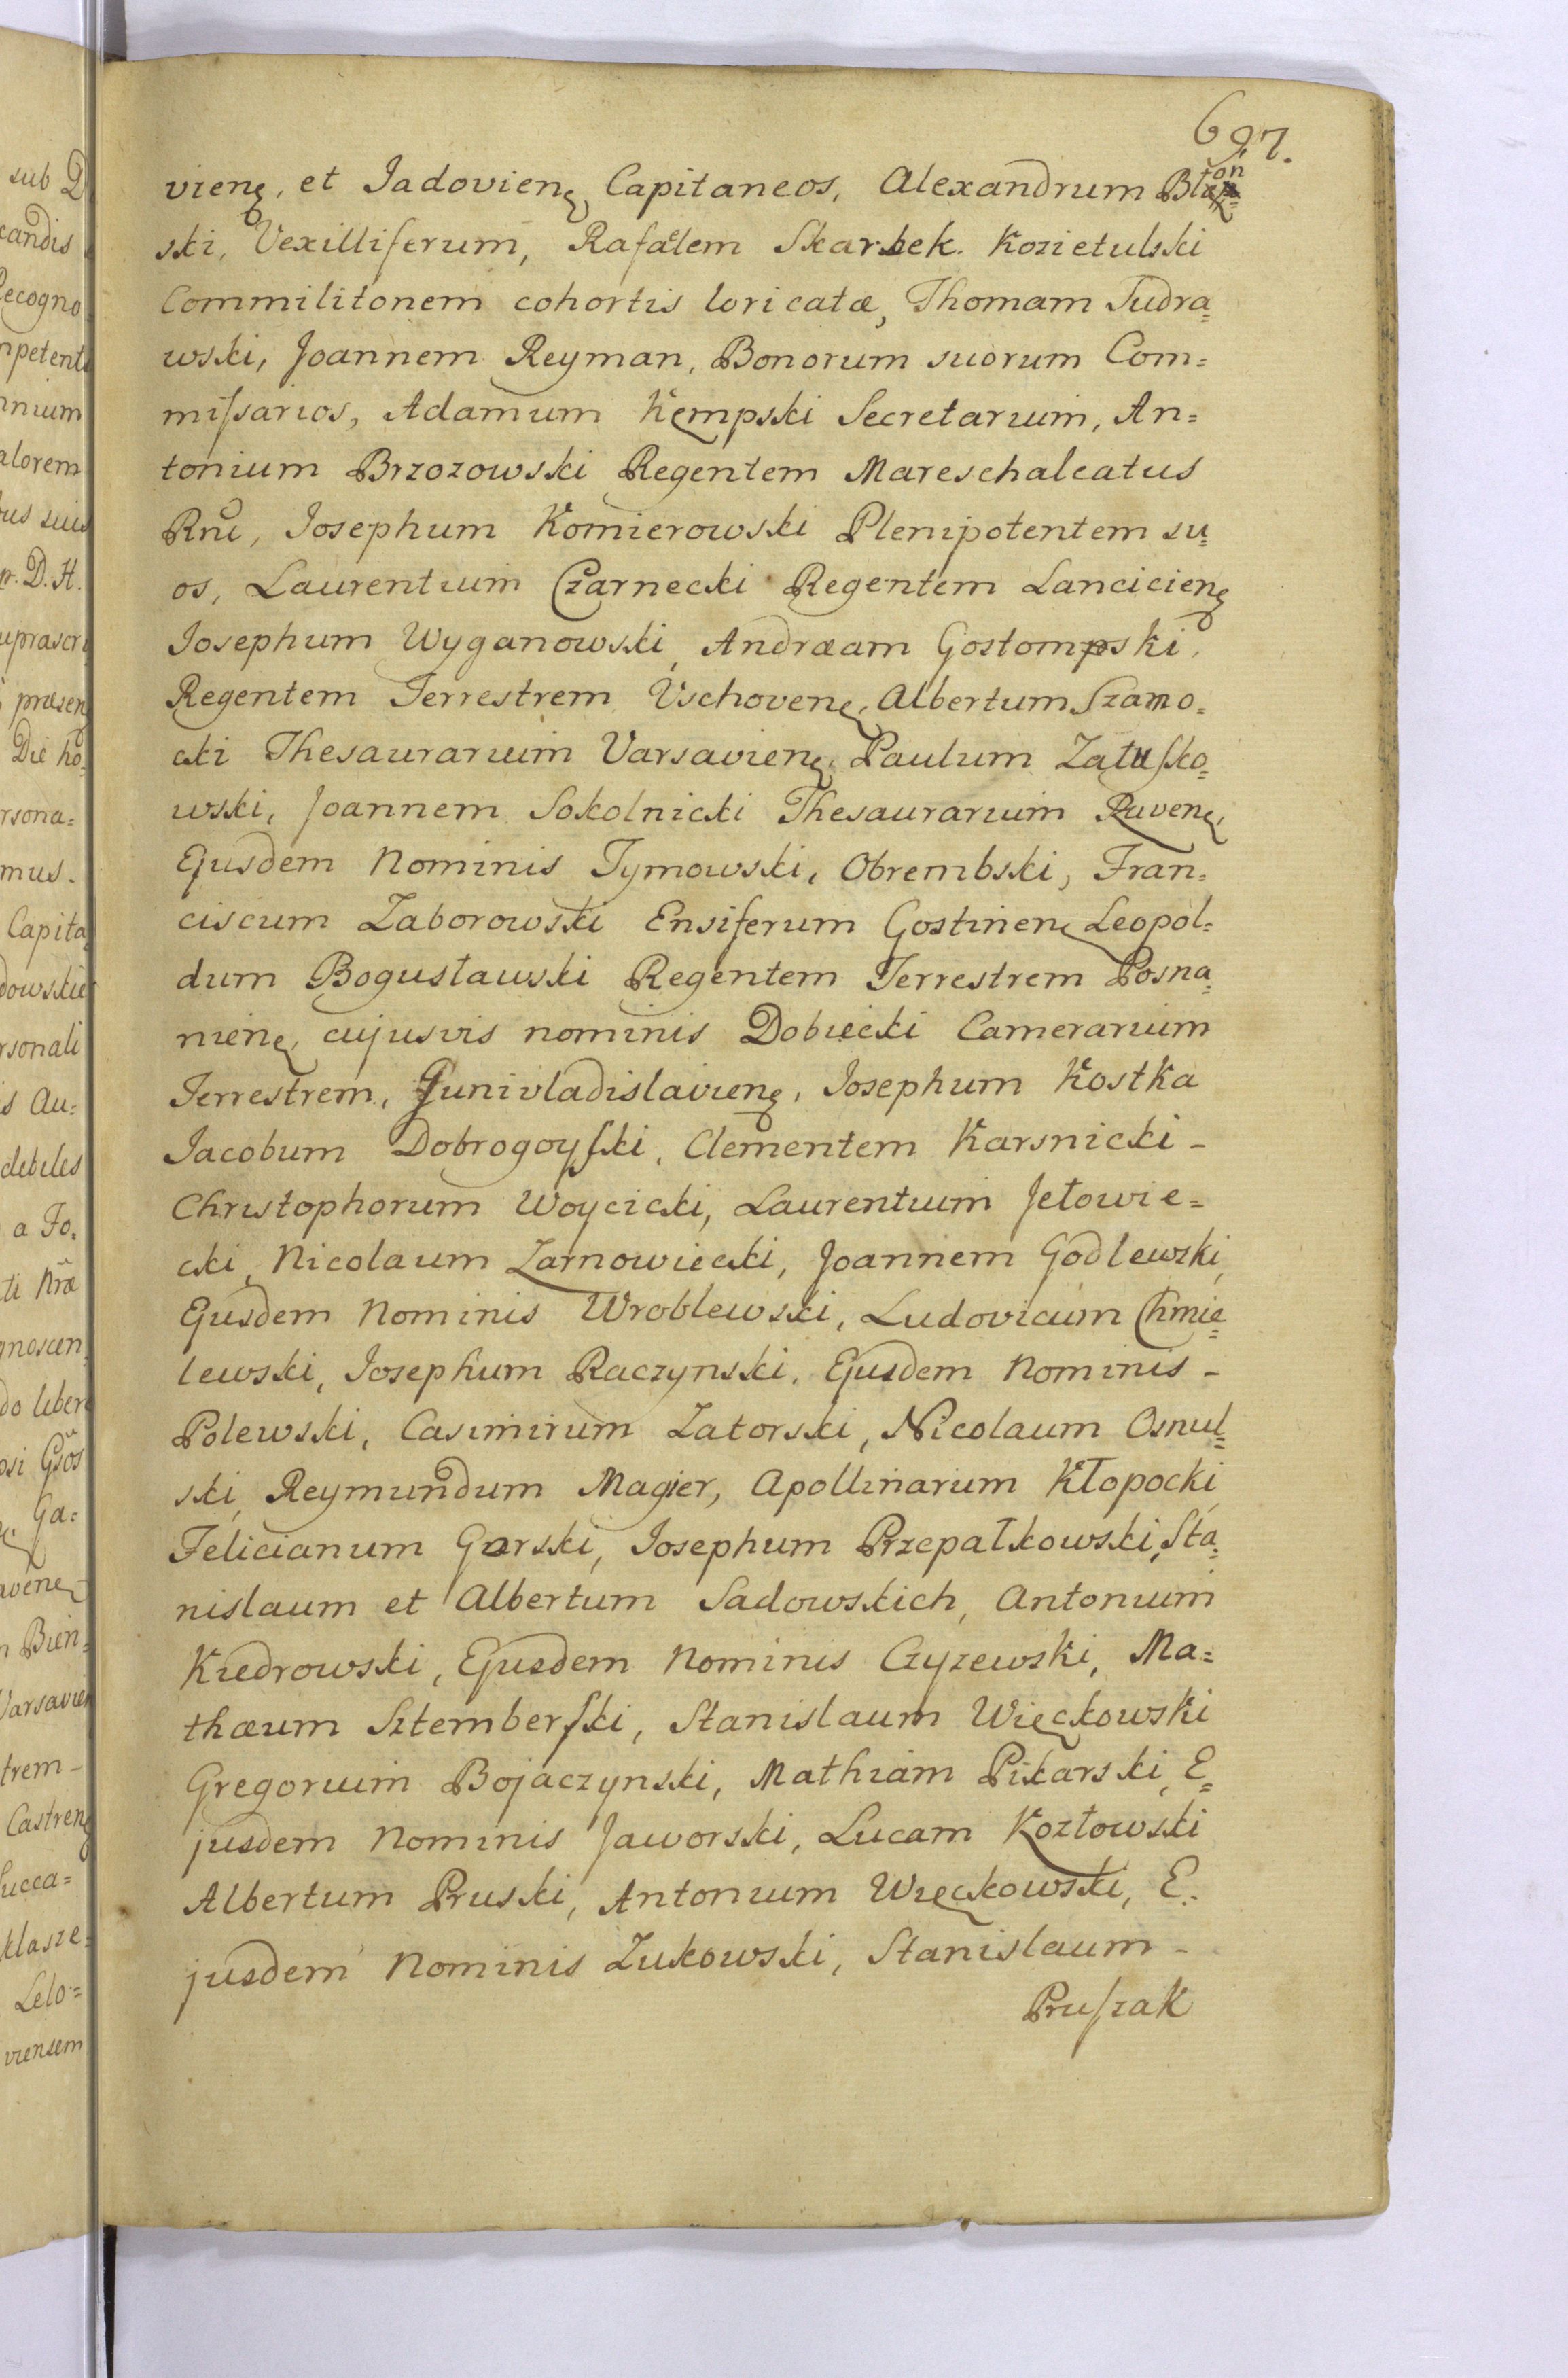 697.
vienę, et Jadovienę, Capitaneos, Alexandrum Błoń=
ski, Vexilliferum, Rafaëlem Skarbek Kozietulski
Commilitonem cohortis loricatæ, Thomam Tudra=
wski, Joannem Reyman, Bonorum suorum Com=
miſsarios, Adamum Kempski Secretarium, An=
tonium Brzozowski Regentem Mareschalcatus
Rnĩ, Josephum Komierowski Plenipotentem su=
os, Laurentium Czarnecki Regentem Lancicienę
Josephum Wyganowski, Andræam Gostompski,
Regentem Terrestrem Vschovenę, Albertum Szamo=
cki Thesaurarium Varsavienę, Paulum Załuſko=
wski, Joannem Sokolnicki Thesaurarium Ravenę,
Ejusdem Nominis Tymowski, Obrembski, Fran=
ciscum Zaborowski Ensiferum Gostinenę Leopol=
dum Bogusławski Regentem Terrestrem Posna=
nienę, cujusvis nominis Dobiecki Camerarium
Terrestrem, Junivladislavienę, Josephum Kostka
Jacobum Dobrogoyſki, Clementem Karsnicki -
Christophorum Woycicki, Laurentium Jełowie=
cki, Nicolaum Zarnowiecki, Joannem Godlewski,
Ejusdem Nominis Wroblewski, Ludovicum Chmie=
lewski, Josephum Raczynski, Ejusdem Nominis -
Polewski, Casimirum Zatorski, Nicolaum Osnul=
ski, Reymundum Magier, Apollinarium Kłopocki
Felicianum Gorski, Josephum Przepałkowski, Sta=
nislaum et Albertum Sadowskich, Antonium
Kiedrowski, Ejusdem Nominis Czyzewski, Ma=
thæum Sztemberſki, Stanislaum Więckowski
Gregorium Bojaczynski, Mathiam Pikarski, E=
jusdem Nominis Jaworski, Lucam Kozłowski
Albertum Pruski, Antonium Więckowski, E=
jusdem Nominis Zukowski, Stanislaum -
Pruſzak